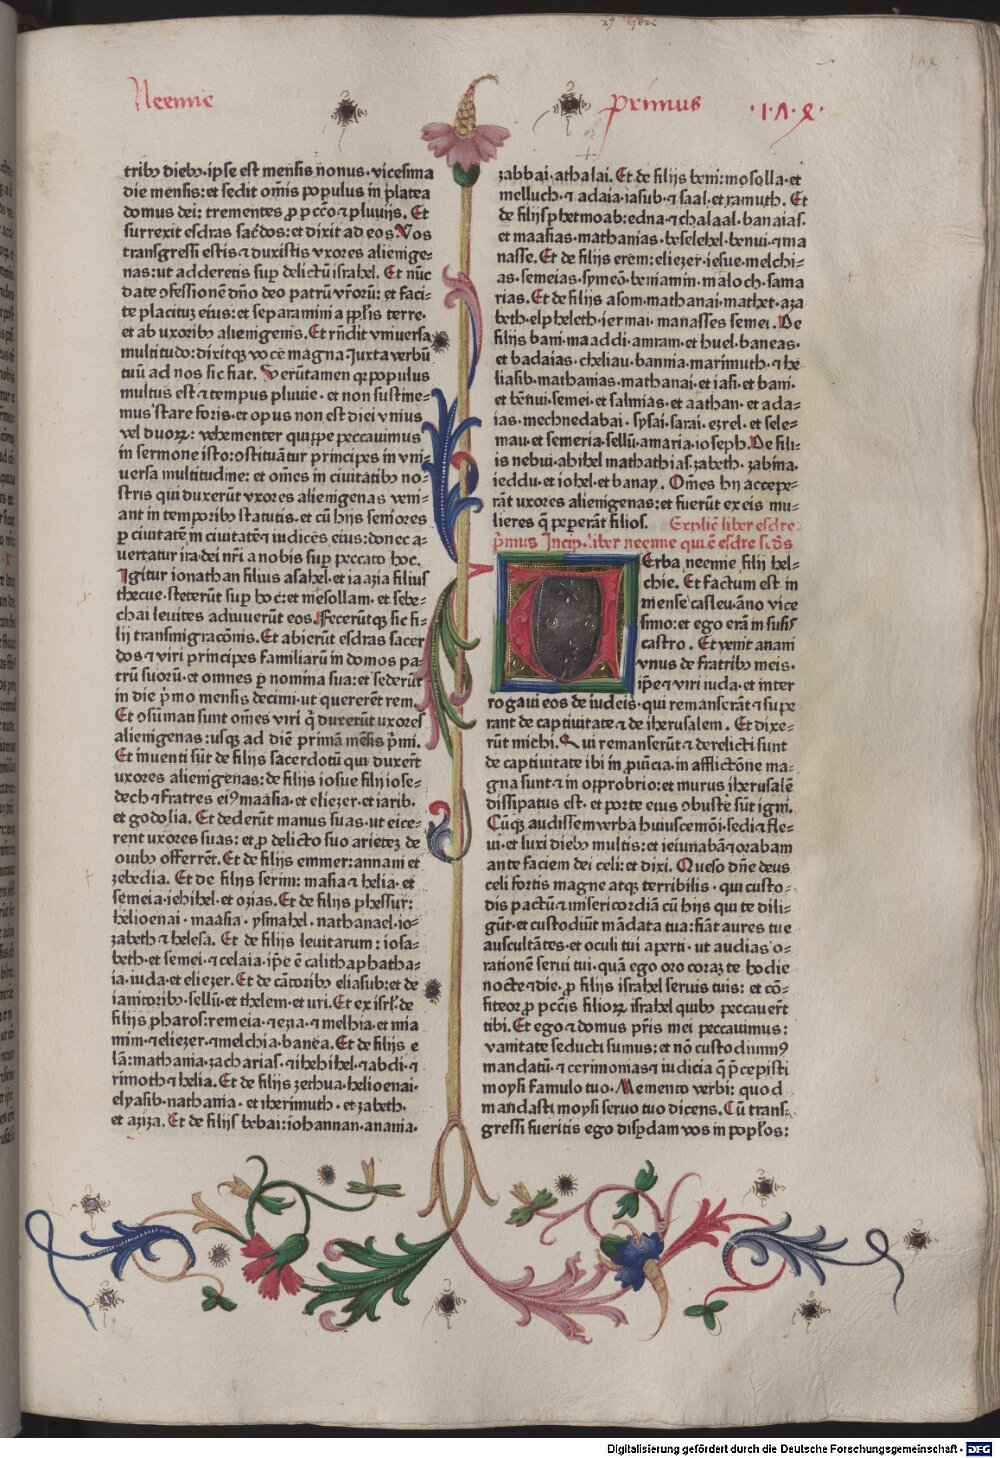 Neemie
primus
tribꝫ diebꝫ·ipse est mensis nonus·vicesima
die mensis:et sedit om̄is populus in platea
domus dei: trementes ꝓ pccō ⁊ pluuijs. Et
surrexit esdras sac̄dos:et dixit ad eos.Vos
transgressi estis ⁊ duxistis vxores alienige⸗
nas:ut adderetis sup̱ delictū israhel. Et nūc
date ꝯfessionē dn̄o deo patrū vr̄orū: et faci⸗
te placitū eius: et separamini a pp̄lis terre·
et ab uxoribꝫ alienigenis.Et rn̄dit vniuersa
multitudo:dixitqꝫ voce magna.Juxta verbū
tuū ad nos sic fiat. Verūtamen qꝫ populus
multus est ⁊ tempus pluuie · et non sustine⸗
mus stare foris·et opus non est diei vnius
vel duoꝝ: vehementer quippe peccauimus
in sermone isto:ꝯstituātur principes in vni⸗
uersa multitudine: et om̄es in ciuitatibꝫ no⸗
stris qui duxerūt vxores alienigenas veni⸗
ant in temporibꝫ statutis·et cū hijs seniores
ꝑ ciuitatē in ciuitatē ⁊ iudices eius:donec a⸗
uertatur ira dei nr̄i a nobis sup̱ peccato hoc.
Igitur ionathan filius asahel·et iaazia filius
thecue·steterūt sup̱ hoc:et mesollam·et sebe⸗
chai leuites adiuuerūt eos.Fecerūtqꝫ sic fi⸗
lij transmigracōnis.Et abierūt esdras sacer
dos ⁊ viri principes familiarū in domos pa⸗
trū suorū·et omnes ꝑ nomina sua:et sederūt
in die pͥmo mensis decimi·ut quererēt rem.
Et ꝯsūmati sunt om̄es viri q̄ duxerūt uxores
alienigenas:usqꝫ ad diē primā mēsis pͥmi.
Et inuenti sūt de filijs sacerdotū qui duxerūt
uxores alienigenas:de filijs iosue filij iose⸗
dech ⁊ fratres eiꝰ maasia·et eliezer·et iarib·
et godolia. Et dederūt manus suas·ut eice⸗
rent uxores suas: et ꝓ delicto suo arietez de
ouibꝫ offerrēt. Et de filijs emmer:annani et
zebedia. Et de filijs serim: masia ⁊ helia·et
semeia·iehihel·et ozias.Et de filijs phessur:
helioenai · maasia · ysmahel·nathanael·io⸗
zabeth ⁊ helesa. Et de filijs leuitarum: iosa⸗
beth·et semei·⁊ celaia·ip̄e ē calithaphatha⸗
ia·iuda·et eliezer. Et de cātoribꝫ eliasub:et de
ianitoribꝫ·sellū·et thelem·et uri. Et ex isrl̄·de
filijs pharos:remeia·⁊ezia·⁊ melhia·et mia
min·⁊ eliezer·⁊melchia·banea.Et de filijs e
lā:mathania·zacharias·⁊ihehihel·⁊abdi·⁊
rimoth ⁊ helia.Et de filijs zethua·helioenai·
elyasib·nathania·et iherimuth·et zabeth·
et aziza.Et de filijs bebai:iohannan·anania·
zabbai·athalai. Et de filijs beni:mosolla·et
melluch·⁊ adaia·iasub·⁊ saal·et ramuth. Et
de filijs phetmoab:edna·⁊ chalaal·banaias·
et maasias·mathanias·beselehel·benui·⁊ ma
nasse. Et de filijs erem:eliezer·iesue·melchi⸗
as·semeias·symeō·beniamin·maloch·sama
rias.Et de filijs asom·mathanai·mathet·aza
beth·elpheleth·iermai·manasses·semei.De
filijs bani·maaddi·amram·et huel·baneas·
et badaias·cheliau·bannia·marimuth·⁊ he
liasib·mathanias·mathanai·et iasi·et bani·
et bēnui·semei·et salmias·et aathan·et ada⸗
ias·mechnedabai·sysai·sarai·ezrel·et sele⸗
mau·et semeria·sellū·amaria·ioseph.De fili⸗
is nebui·ahihel·mathathias·zabeth·zabina·
ieddu·et iohel·et banay. Om̄es hij accepe⸗
rāt uxores alienigenas:et fuerūt ex eis mu⸗
lieres q̄ pepererāt filios. Explic̄ liber esdre
pͥmus Incip̱ liber neemie qui ē esdre scd̄s
Verba neemie filij hel⸗
chie. Et factum est in
mense casleu·āno vice
simo:et ego erā in susis
castro. Et venit anani
vnus de fratribꝫ meis·
ip̄e ⁊ viri iuda·et inter
rogaui eos de iudeis·qui remanserāt ⁊ supe
rant de captiuitate ⁊ de iherusalem. Et dixe⸗
rūt michi.Qui remanserūt ⁊ derelicti sunt
de captiuitate ibi in ꝓuīcia·in afflictōne ma⸗
gna sunt ⁊ in opprobrio:et murus iherusalē
dissipatus est·et porte eius ꝯbuste sūt igni.
Cūqꝫ audissem verba huiuscemōi·sedi ⁊ fle⸗
ui·et luxi diebꝫ multis:et ieiunabā ⁊ orabam
ante faciem dei celi:et dixi. Queso dn̄e deus
celi fortis magne atqꝫ terribilis·qui custo⸗
dis pactū ⁊ misericordiā cū hijs qui te dili⸗
gūt·et custodiūt mādata tua:fiāt aures tue
auscultātes·et oculi tui aperti·ut audias o⸗
rationē serui tui·quā ego oro coraꝫ te hodie
nocte ⁊ die·ꝓ filijs israhel seruis tuis: et cō⸗
fiteor ꝓ pccīs filioꝝ israhel quibꝫ peccauerūt
tibi.Et ego ⁊ domus pr̄is mei peccauimus:
vanitate seducti sumus:et nō custodiuimꝰ
mandatū·⁊ cerimonias ⁊ iudicia q̄ p̄cepisti
moysi famulo tuo. Memento verbi: quod
mandasti moysi seruo tuo dicens. Cū trans⸗
gressi fueritis ego disꝑdam vos in populos:
Digitalisierung gefördert durch die Deutsche Forschungsgemeinschaft · DFG